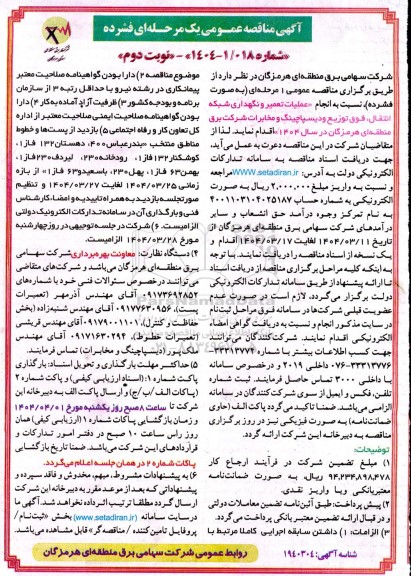 آگهی مناقصه عمومی یک مرحله‌ای فشرده
«شماره ۱۸-۰/۱-۱۴۰۴» - «نوبت دوم»
شرکت سهامی برق منطقه‌ای هرمزگان در نظر دارد از
طریق برگزاری مناقصه عمومی ۱ مرحله‌ای (به صورت
فشرده)، نسبت به انجام «عملیات تعمیر و نگهداری شبکه
انتقال، فوق توزیع و دیسپاچینگ و مخابرات شرکت برق
منطقه‌ای هرمزگان در سال ۱۴۰۴» اقدام نماید. لذا از
متقاضیان شرکت در این مناقصه دعوت به عمل می‌آید،
جهت دریافت اسناد مناقصه به سامانه تدارکات
الکترونیکی دولت به آدرس: WWW.setadiran.ir مراجعه
و نسبت به واریز مبلغ ۲,۰۰۰,۰۰۰ ریال به صورت
الکترونیکی به شماره حساب
به نام تمرکز وجوه درآمد حق انشعاب و سایر
درآمدهای شرکت سهامی برق منطقه‌ای هرمزگان از
تاریخ ۱۴۰۴/۰۳/۱۱ لغایت ۱۴۰۴/۰۳/۱۷ اقدام و
یک نسخه از اسناد مناقصه را دریافت نمایند. با توجه
به اینکه کلیه مراحل برگزاری مناقصه از دریافت اسناد
تا ارائه پیشنهاد از طریق سامانه تدارکات الکترونیکی
دولت برگزار می‌گردد، لازم است در صورت عدم
عضویت قبلی شرکت‌ها در سامانه فوق مراحل ثبت‌نام
در سایت مذکور انجام و نسبت به دریافت گواهی امضاء
الکترونیکی اقدام نمایند. شرکت‌کنندگان می‌توانند
جهت کسب اطلاعات بیشتر با شماره
۰۷۶-۳۳۳۱۳۷۷۶ داخلی ۲۰۱۹ و در خصوص سامانه
با داخلی ۳۰۰۰ تماس حاصل فرمایند. ثبت شماره
تلفن، فکس و ایمیل از سوی شرکت‌کنندگان در سامانه
الزامی می‌باشد. ضمناً تاکید می‌گردد پاکت الف (حاوی
ضمانت‌نامه) به صورت فیزیکی نیز در روز برگزاری
مناقصه به دبیرخانه این شرکت ارائه گردد.
توضیحات:
۱) مبلغ تضمین شرکت در فرآیند ارجاع کار
۹۴,۲۳۴,۸۹۸,۴۷۸ ریال، به صورت ضمانت‌نامه
معتبر بانکی و یا واریز نقدی.
۲) پیش پرداخت: طبق آئین‌نامه تضمین معاملات دولتی
و در قبال ارائه تضمین معتبر بانکی پرداخت می‌گردد.
۳) الزامات: ۱) داشتن سابقه اجرایی کاملا مرتبط با
موضوع مناقصه ۲) دارا بودن گواهینامه صلاحیت معتبر
پیمانکاری در رشته نیرو با حداقل رتبه ۳ از سازمان
برنامه و بودجه کشور ۳) ظرفیت آزاد آماده به کار ۴) دارا
بودن گواهینامه صلاحیت ایمنی صلاحیت معتبر از اداره
کل تعاون کار و رفاه اجتماعی ۵) بازدید از پست‌ها و خطوط
مناطق منتخب «بندرعباس ۴۰۰، دهستان ۱۳۲ فاز۱،
کوشکنار ۱۳۲ فاز۱، رودخانه ۲۳۰، لیردف ۲۳۰ فاز۱،
بهمن ۶۳ فاز۱، پهل ۲۳۰، باسعیدو ۶۳ فاز۱» از بازه
زمانی ۱۴۰۴/۰۳/۲۵ لغایت ۱۴۰۴/۰۳/۲۷ و تنظیم
صورتجلسه بازدید به همراه تاییدیه و امضاء کارشناس
فنی و بارگذاری آن در سامانه تدارکات الکترونیک دولتی
الزامیست. ۶) شرکت در جلسه توجیهی در روز چهارشنبه
مورخ ۱۴۰۴/۰۳/۲۸ الزامیست.
۴) دستگاه نظارت: معاونت بهره‌برداری شرکت سهامی
برق منطقه‌ای هرمزگان می‌باشد و شرکت‌های متقاضی
می‌توانند در خصوص سئوالات فنی خود با شماره‌های
۰۹۱۷۳۶۹۲۸۵۲ آقای مهندس آذرمهر (تعمیرات
پست)، ۰۹۱۷۷۶۳۰۹۵۶ آقای مهندس شنبه‌زاده (بخش
حفاظت و کنترل)، ۰۹۱۷۹۰۰۱۱۰۱ آقای مهندس قریشی
(تعمیرات خطوط)، ۰۹۱۷۱۶۳۰۲۹۴ آقای مهندس
(دیسپاچینگ و مخابرات) تماس فرمایند.
۵) حداکثر مهلت بارگذاری و تحویل اسناد: بارگذاری
پاکت شماره ۱: (اسناد ارزیابی کیفی) و پاکت شماره ۲
(پاکات الف/ب/ج) و ارسال پاکات الف به دبیرخانه این
شرکت تا ساعت ۸ صبح روز یکشنبه مورخ ۱۴۰۴/۰۴/۰۱
و زمان بازگشایی پاکات شماره ۱ (ارزیابی کیفی) همان
روز راس ساعت ۱۰ صبح در دفتر امور تدارکات و
قراردادهای این شرکت می‌باشد. ضمنا تاریخ بازگشایی
پاکات شماره ۲ در همان جلسه اعلام می‌گردد.
۶) به پیشنهادات مشروط، مبهم، مخدوش و فاقد سپرده و
پیشنهاداتی که بعد از موعد مقرر به دبیرخانه این شرکت
ارسال گردد مطلقا ترتیب اثر داده نخواهد شد. آگهی ما
در سایت سامانه (www.setadiran.ir) بخش «ثبت‌نام/
پروفایل تامین کننده/مناقصه‌گر» قابل مشاهده می‌باشد.
شناسه آگهی: ۱۹۴۰۳۰۴
روابط عمومی شرکت سهامی برق منطقه‌ای هرمزگان